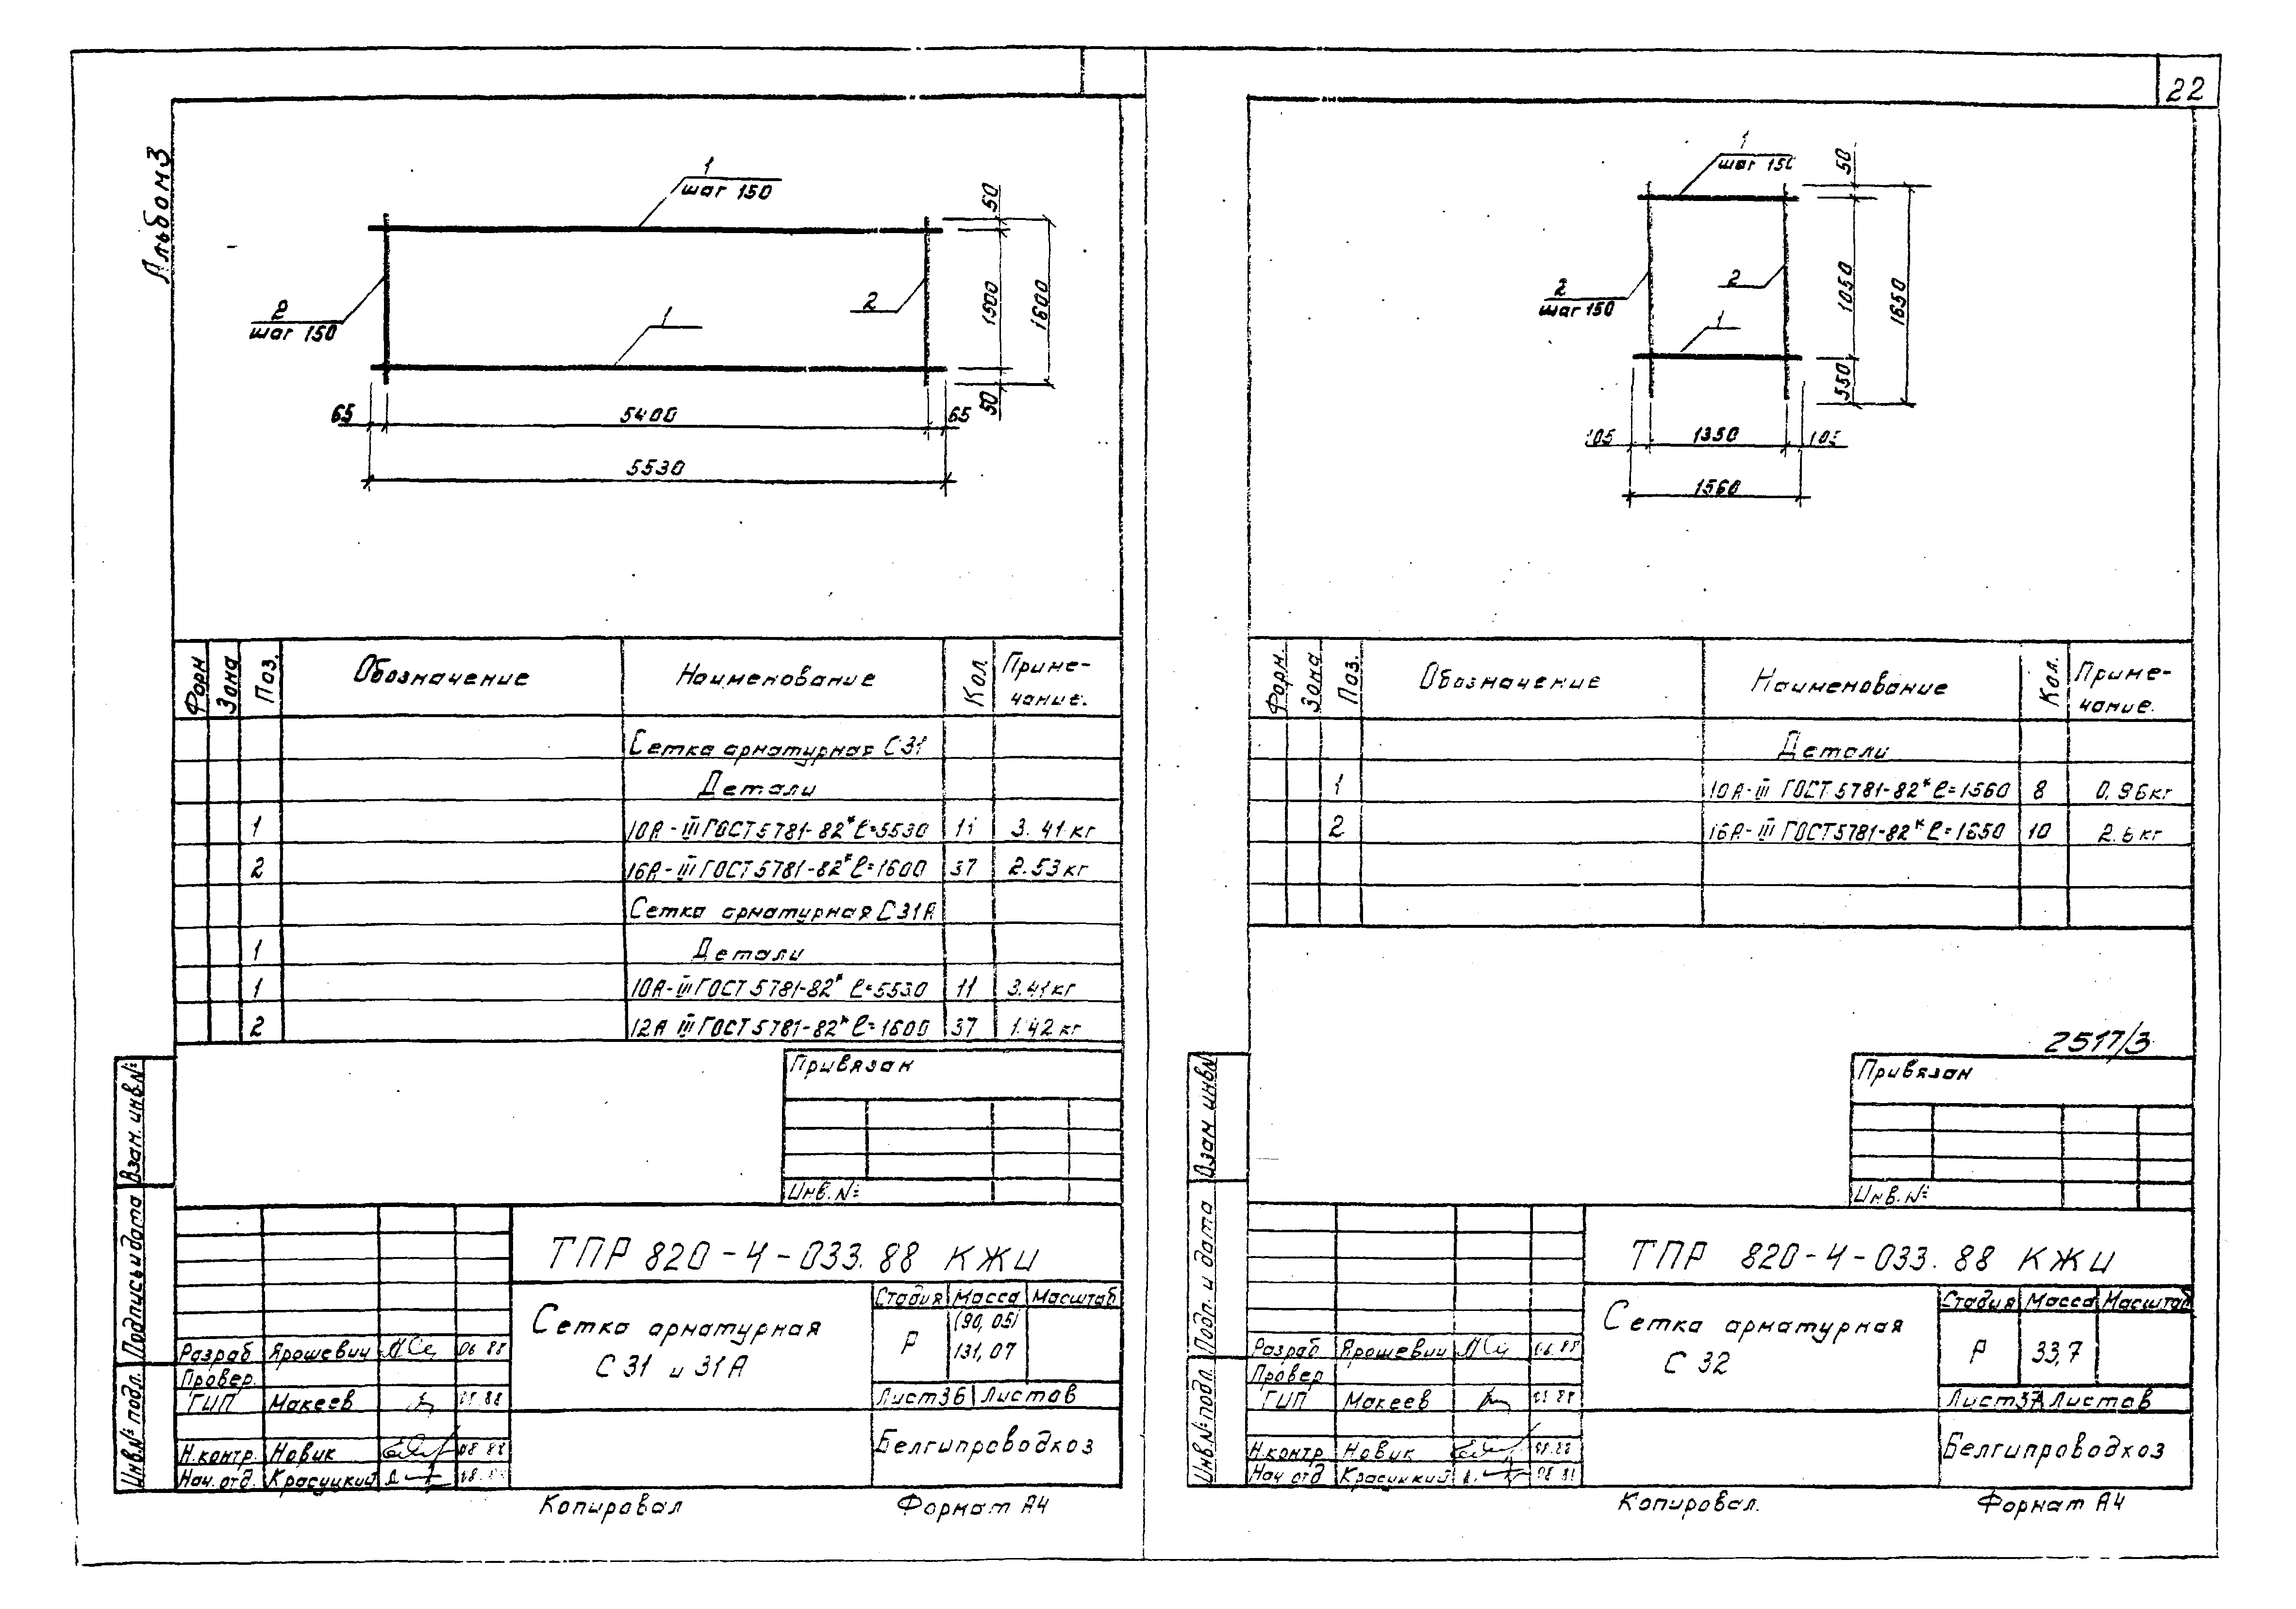 22
Альбом 3
1
шаг 150
2
шаг 150
2
1
50
1500
1600
50
65
5400
65
5530
Форм
Зона
Поз.
Обозначение
Наименование
Кол.
Приме-
чание.
Сетка арматурная С31
Детали
1 10А-III ГОСТ 5781-82* ℓ=5530 11 3.41кг
2 16А-III ГОСТ 5781-82* ℓ=1600 37 2.53кг
Сетка арматурная С31А
1 Детали
1 10А-III ГОСТ 5781-82* ℓ=5530 11 3.41кг
2 12А III ГОСТ 5781-82* ℓ=1600 37 1.42кг
Привязан
Инв. №
Взам. инв.№
Подпись и дата
Инв.№ подл.
ТПР 820-4-033.88 КЖИ
Сетка арматурная
С 31 и 31А
Стадия Масса Масштаб
Р (90,05)
131,07
Лист 36 Листов
Белгипроводхоз
Разраб Ярошевич 06.88
Провер.
ГИП Макеев
Н.контр. Новик 08 88
Нач.отд. Красуцкий
Копировал Формат А4
1
шаг 150
2
шаг 150
2
1
50
1050
1650
550
105
1350
105
1560
Форм.
Зона
Поз.
Обозначение
Наименование
Кол.
Приме-
чание.
Детали
1 10А-III ГОСТ 5781-82* ℓ=1560 8 0.96кг
2 16А-III ГОСТ 5781-82* ℓ=1650 10 2.6кг
2517/3
Привязан
Инв. №
Взам инв№
Подп. и дата
Инв.№ подл.
ТПР 820-4-033.88 КЖИ
Сетка арматурная
С 32
Стадия Масса Масштаб
Р 33,7
Лист 37 Листов
Белгипроводхоз
Разраб Ярошевич 06.88
Провер
ГИП Макеев
Н.контр Новик 08.88
Нач отд Красуцкий
Копировал. Формат А4